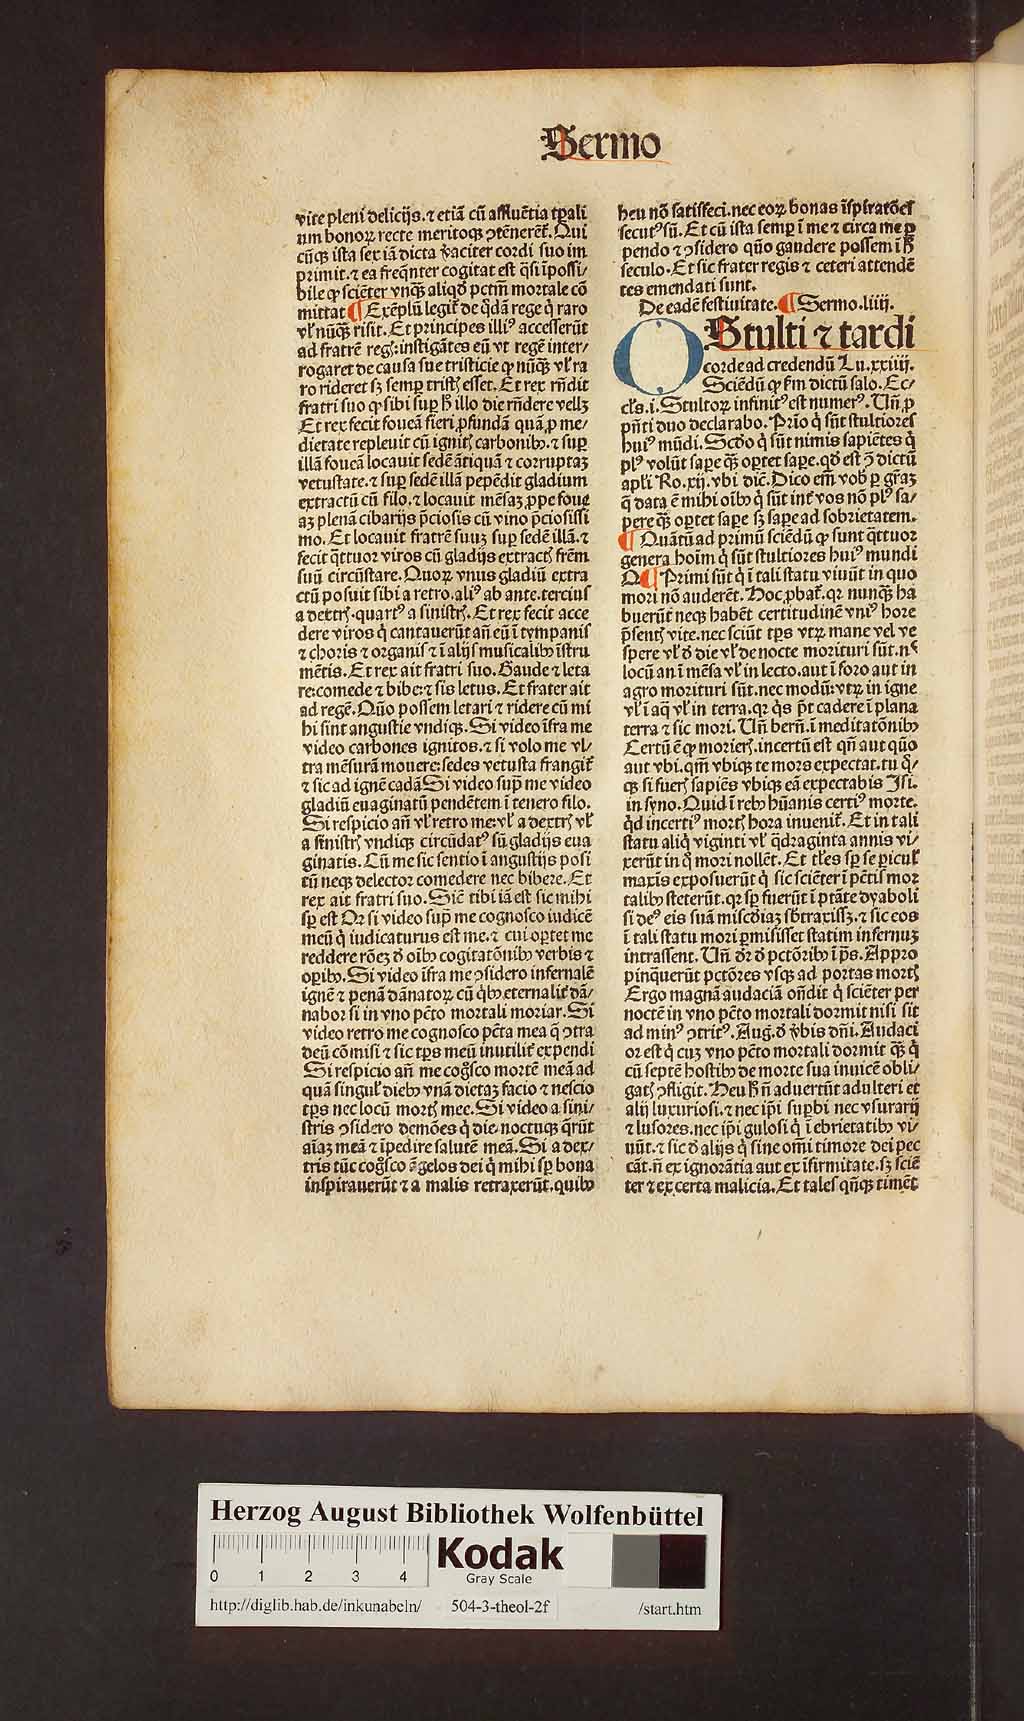 Sermo
vite pleni delicijs. ⁊ etiā cū affluētia tp̄ali
um bonoꝝ recte meritoqꝫ ꝯtēnerēt. Qui
cūqꝫ ista sex iā dicta v̓aciter cordi suo im
primit. ⁊ ea freqn̄ter cogitat est q̄si īpossi/
bile ꝙ sciēter vnqꝫ aliqd̓ pctm̄ mortale cō
mittat ¶ Exēplū legit̓ de qdā rege q̓ raro
vl̓ nūqꝫ risit. Et principes illi⁹ accesserūt
ad fratrē regꝭ: instigātes eū vt regē inter/
rogaret de causa sue tristicie ꝙ nūqꝫ vl̓ ra
ro rideret sꝫ semꝑ tristꝭ esset. Et rex rn̄dit
fratri suo ꝙ sibi suꝑ h̓ illo die rn̄dere vellꝫ
Et rex fecit foueā fieri ꝓfundā quā ꝓ me/
dietate repleuit cū ignitꝭ carbonibꝰ. ⁊ suꝑ
illā foueā locauit sedē ātiquā ⁊ corruptaꝫ
vetustate. ⁊ suꝑ sedē illā pepēdit gladium
extractū cū filo. ⁊ locauit mēsaꝫ ꝓpe foue
aꝫ plenā cibarijs p̄ciosis cū vino p̄ciosissi
mo. Et locauit fratrē suuꝫ suꝑ sedē illā. ⁊
fecit q̄ttuor viros cū gladijs extractꝭ frēm
suū circūstare. Quoꝝ vnus gladiū extra
ctū posuit sibi a retro. ali⁹ ab ante. tercius
a dextrꝭ. quart⁹ a sinistrꝭ. Et rex fecit acce
dere viros q̓ cantauerūt an̄ eū ī tympanis
⁊ choris ⁊ organis ⁊ ī alijs musicalibꝰ īstru
mētis. Et rex ait fratri suo. Gaude ⁊ leta
re: comede ⁊ bibe: ⁊ sis letus. Et frater ait
ad regē. Quō possem letari ⁊ ridere cū mi
hi sint angustie vndiqꝫ. Si video īfra me
video carbones ignitos. ⁊ si volo me vl/
tra mēsurā mouere: sedes vetusta frangit̓
⁊ sic ad ignē cadā Si video sup̄ me video
gladiū euaginatū pendētem ī tenero filo.
Si respicio an̄ vl̓ retro me: vl̓ a dextrꝭ vl̓
a sinistrꝭ vndiqꝫ circūdat⁹ sū gladijs eua
ginatis. Cū me sic sentio ī angustijs posi
tū neqꝫ delector comedere nec bibere. Et
rex ait fratri suo. Sic̄ tibi iā est sic mihi
sꝑ est Qr si video sup̄ me cognosco iudicē
meū q̓ iudicaturus est me. ⁊ cui oꝑtet me
reddere rōeꝫ d̓ oībꝰ cogitatōnibꝰ verbis ⁊
oꝑibꝰ. Si video īfra me ꝯsidero infernalē
ignē ⁊ penā dānatoꝝ cū qbꝰ eternalit̓ dā/
nabor si in vno pctō mortali moriar. Si
video retro me cognosco pctā mea q̄ ꝯtra
deū cōmisi ⁊ sic tp̄s meū inutilit̓ expendi
Si respicio an̄ me cog̓sco mortē meā ad
quā singul̓ diebꝰ vnā dietaꝫ facio ⁊ nescio
tp̄s nec locū mortꝭ mee. Si video a sini/
stris ꝯsidero demōes q̓ die noctuqꝫ q̄rūt
aīaꝫ meā ⁊ īpedire salutē meā. Si a dex/
tris tūc cog̓sco āgelos dei q̓ mihi sꝑ bona
inspirauerūt ⁊ a malis retraxerūt. quibꝰ
heu nō satisfeci. nec eoꝝ bonas īspiratōes
secut⁹ sū. Et cū ista semꝑ ī me ⁊ circa me ꝑ
pendo ⁊ ꝯsidero quō gaudere possem ī h̓
seculo. Et sic frater regis ⁊ ceteri attendē
tes emendati sunt.
De eadē festiuitate. ¶ Sermo. liiij.
O Stulti ⁊ tardi
corde ad credendū Lu. xxiiij.
Sciēdū ꝙ fm̄ dictū salo. Ec/
cl̓s. i. Stultoꝝ infinit⁹ est numer⁹. Un̄ ꝓ
pn̄ti duo declarabo. Prīo q̓ sūt stultiores
hui⁹ mūdi. Scd̄o q̓ sūt nimis sapiētes q̓
pl⁹ volūt saꝑe qꝫ oꝑtet saꝑe. qd̓ est ꝯ̄ dictū
apl̓i Ro. xij. vbi dic̄. Dico em̄ vob̓ ꝑ gr̄aꝫ
q̄ data ē mihi oībꝰ q̓ sūt int̓ vos nō pl⁹ sa/
pere qꝫ oꝑtet saꝑe sꝫ saꝑe ad sobrietatem.
¶ Quātū ad primū sciēdū ꝙ sunt q̄ttuor
genera hoīm q̓ sūt stultiores hui⁹ mundi
¶ Primi sūt q̓ ī tali statu viuūt in quo
mori nō auderēt. Hoc ꝓbat̓. qr nunqꝫ ha
buerūt neqꝫ habēt certitudinē vni⁹ hore
p̄sentꝭ vite. nec sciūt tp̄s vtꝝ mane vel ve
spere vl̓ d̓ die vl̓ de nocte morituri sūt. n̓
locū an ī mēsa vl̓ in lecto. aut ī foro aut in
agro morituri sūt. nec modū: vtꝝ in igne
vl̓ ī aq̄ vl̓ in terra. qr q̓s pt̄ cadere ī plana
terra ⁊ sic mori. Un̄ bern̄. ī meditatōnibꝰ
Certū ē ꝙ morierꝭ. incertū est qn̄ aut quō
aut vbi. qm̄ vbiqꝫ te mors expectat. tu q̓/
qꝫ si fuerꝭ sapiēs vbiqꝫ eā expectabis Isi.
in syno. Quid ī rebꝰ hūanis certi⁹ morte.
qd̓ incerti⁹ mortꝭ hora inuenit̓. Et in tali
statu aliq̓ viginti vl̓ q̄draginta annis vi/
xerūt in q̓ mori nollēt. Et tl̄es sꝑ se picul̓
maxīs exposuerūt q̓ sic sciēter ī pctīs mor
talibꝰ steterūt. qr sꝑ fuerūt ī ptāte dyaboli
si de⁹ eis suā miscd̓iaꝫ sb̓traxissꝫ. ⁊ sic eos
ī tali statu mori ꝑmisisset statim infernuꝫ
intrassent. Un̄ dr̄ d̓ pctōribꝰ ī p̄s. Appro
pinquerūt pctōres vsqꝫ ad portas mortꝭ
Ergo magnā audaciā on̄dit q̓ sciēter per
noctē in vno pctō mortali dormit nisi sit
ad min⁹ ꝯtrit⁹. Aug. d̓ v̓bis dn̄i. Audaci
or est q̓ cuꝫ vno pctō mortali dormit qꝫ q̓
cū septē hostibꝰ de morte sua inuicē obli/
gatꝭ ꝯfligit. Heu h̓ n̄ aduertūt adulteri et
alij luxuriosi. ⁊ nec ip̄i suꝑbi nec vsurarij
⁊ lusores. nec ip̄i gulosi q̓ ī ebrietatibꝰ vi/
uūt. ⁊ sic d̓ alijs q̓ sine om̄i timore dei pec
cāt. n̄ ex ignorātia aut ex īfirmitate. sꝫ sciē
ter ⁊ ex certa malicia. Et tales qn̄qꝫ timēt
Herzog August Bibliothek Wolfenbüttel
0 1 2 3 4
Kodak
Gray Scale
http://diglib.hab.de/inkunabeln/ 504-3-theol-2f /start.htm